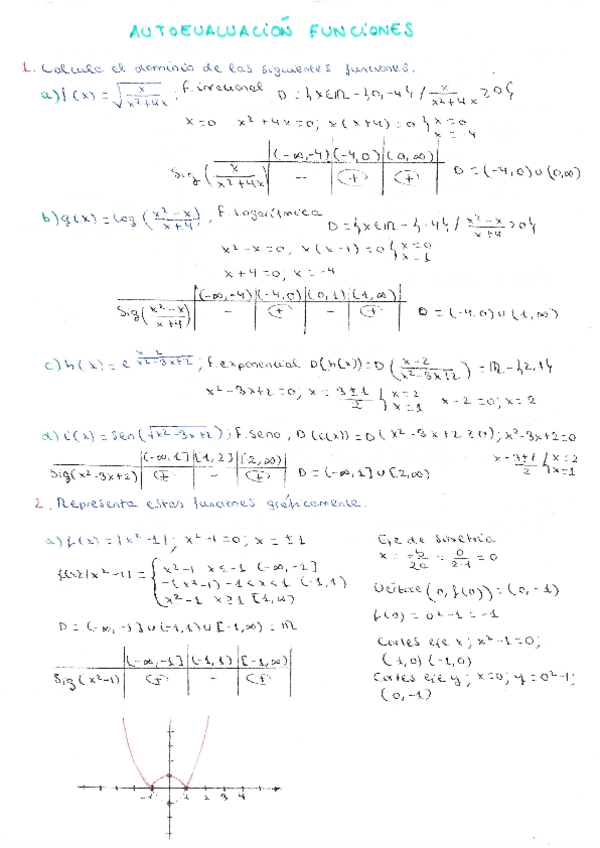 AUTOEVALUACIÓN FUNCIONES
1. Calcula el dominio de las siguientes funciones.
a) f(x) = √(x/(x²+4x)) ; F. irracional D = {x∈ℝ - {0,-4} / x/(x²+4x) ≥ 0}
x=0 x²+4x=0; x(x+4)=0 { x=0 x=-4
(-∞,-4) (-4,0) (0,∞)
Sig(x/(x²+4x)) - + + D = (-4,0)∪(0,∞)
b) g(x) = log((x²-x)/(x+4)), F. logarítmica
D = {x∈ℝ - {-4} / (x²-x)/(x+4) > 0}
x²-x=0, x(x-1)=0 { x=0 x=1
x+4=0; x=-4
(-∞,-4) (-4,0) (0,1) (1,∞)
Sig((x²-x)/(x+4)) - + - + D = (-4,0)∪(1,∞)
c) h(x) = e^((x-2)/(x²-3x+2)) ; F. exponencial D(h(x)) = D((x-2)/(x²-3x+2)) = ℝ - {2,1}
x²-3x+2=0; x = (3±1)/2 { x=2 x=1 x-2=0; x=2
d) i(x) = sen(√(x²-3x+2)); F. seno, D(i(x)) = D(x²-3x+2≥0); x²-3x+2=0
x = (3±1)/2 { x=2 x=1
(-∞,1] [1,2] [2,∞)
Sig(x²-3x+2) + - + D = (-∞,1]∪[2,∞)
2. Representa estas funciones gráficamente.
a) f(x) = |x²-1|; x²-1=0; x=±1
f(x) |x²-1| = { x²-1 x≤-1 (-∞,-1]
-(x²-1) -1<x<1 (-1,1)
x²-1 x≥1 [1,∞)
D = (-∞,-1]∪(-1,1)∪[-1,∞) = ℝ
(-∞,-1] (-1,1) [-1,∞)
Sig(x²-1) + - +
Eje de simetría
x = -b/2a = 0/2·1 = 0
Vértice (0, f(0)) = (0,-1)
f(0) = 0²-1 = -1
Cortes eje x; x²-1=0;
(1,0) (-1,0)
Cortes eje y; x=0; y=0²-1;
(0,-1)
-1 1 2 3 4